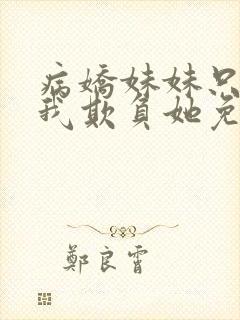 病嬌妹妹只
我欺負她免
鄭良霄